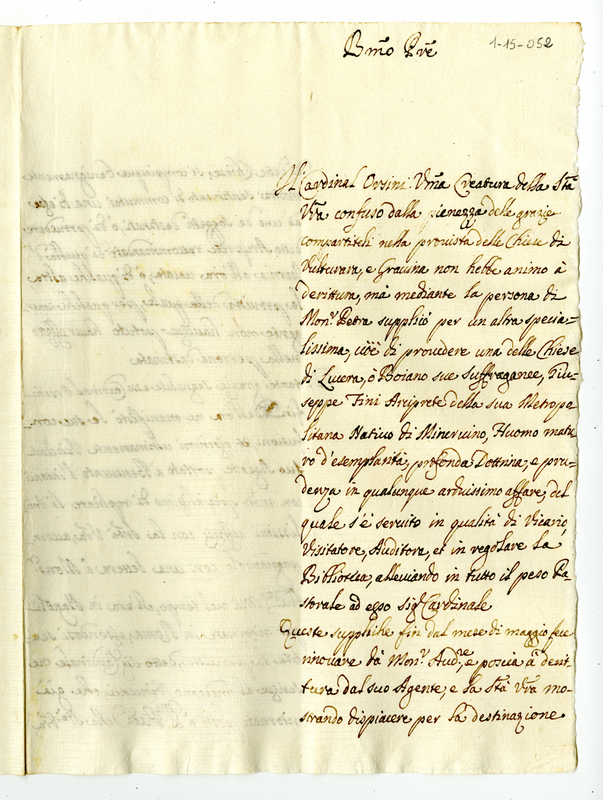 1-15-052
Bm̃o Prẽ
Il Cardinal Orsini Vm̃a Creatura della Stã
Vrã confuso dalla pienezza delle grazie
compartiteli nella provista delle Chiese di
Vulturara, e Gravina non hebbe animo à
derittura, mà mediante la persona di
Mons.r Petra supplicò per un altra specia=
lissima, cioè di provedere una delle Chiese
di Lucera, ò Boiano sue suffraganee, Giu=
seppe Fini Arciprete della sua Metropo
litana Nativo di Minervino, Huomo matu
ro d'esemplarità, profonda Dottrina, e pru=
denza in qualunque arduissimo affare, del
quale s'è servito in qualità di Vicario,
Visitatore, Auditore, et in regolare la
Biblioteca, alleviando in tutto il peso Pa
storale ad esso Sig.r Cardinale
Queste suppliche fin dal mese di maggio fece
rinovare dà Mons.r Aud.re, e poscia à derit
tura dal suo Agente, e la Stã Vrã mo=
strando dispiacere per la destinazione